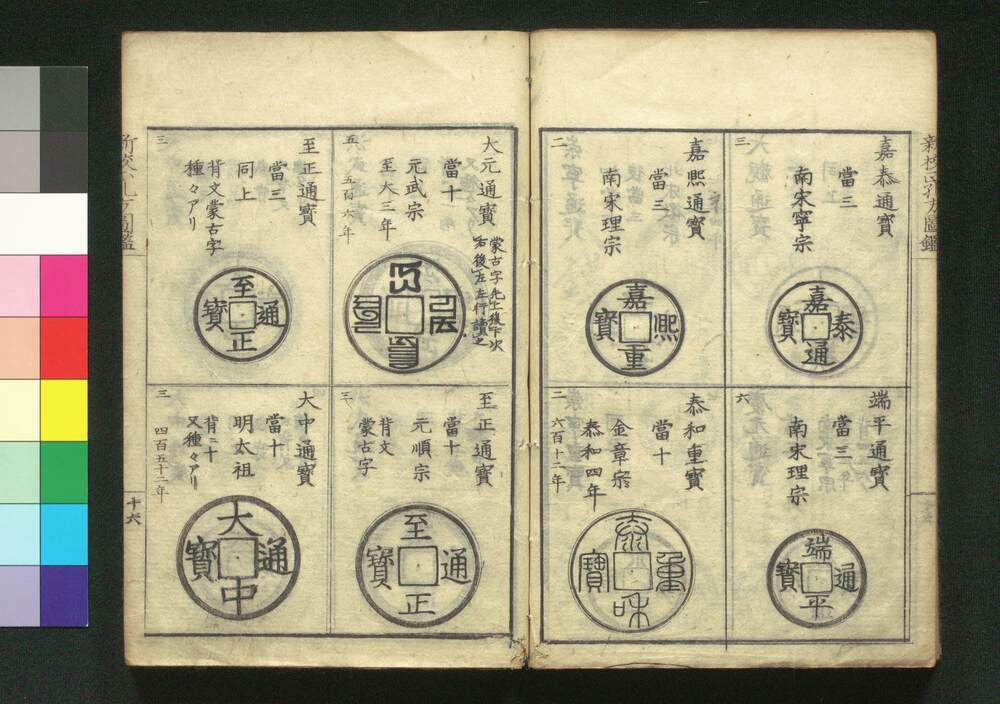 嘉泰通寳
當三
南宋寧宗
三
嘉
泰
通
寳
端平通寳
當三
南宋理宗
六
端
平
通
寳
嘉熙通寳
當三
南宋理宗
二
嘉
熙
重
寳
泰和重寳
當十
金章宗
泰和四年
六百十二年
二
泰
和
重
寳
大元通寳
當十
元武宗
至大三年
五百六年
五
至正通寳
當十
元順宗
背文
蒙古字
三
至
正
通
寳
至正通寳
當三
同上
背文蒙古字
種々アリ
三
至
正
通
寳
大中通寳
當十
明太祖
背ニ十
又種々アリ
四百五十二年
三
大
中
通
寳
十六